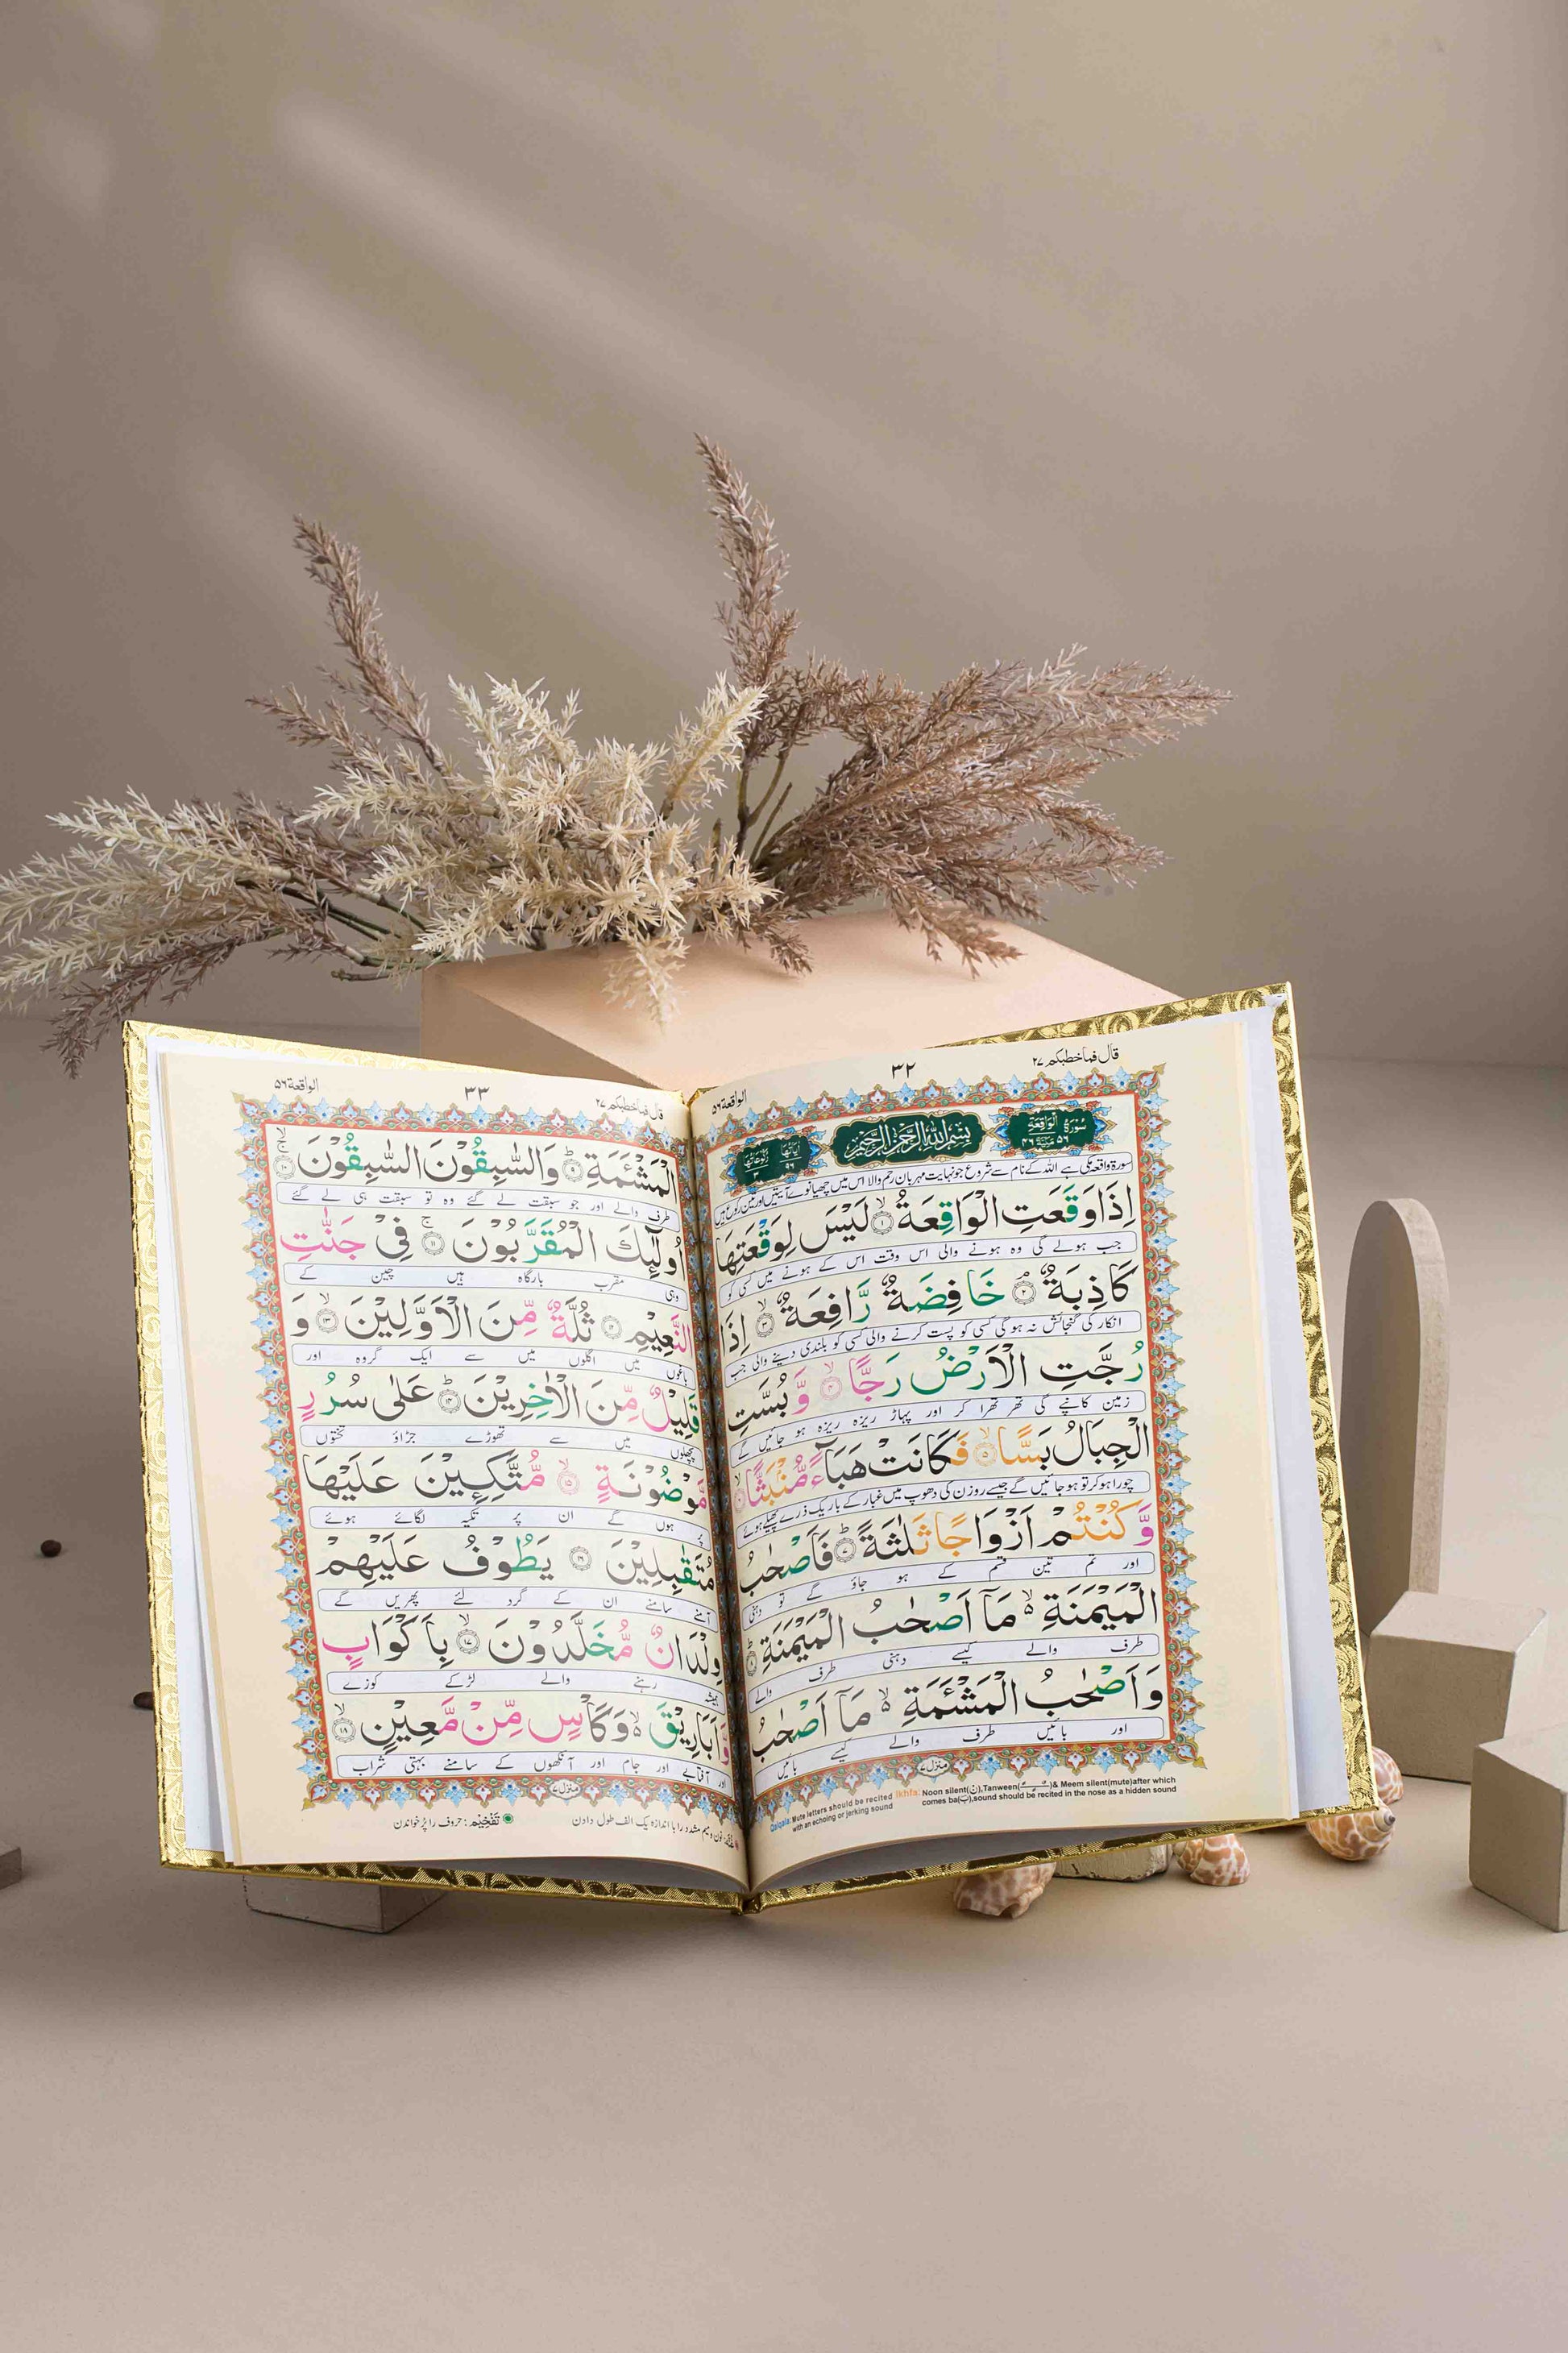 قال فماخطبکم ۲۷
۳۲
الواقعة ۵۶
سُوْرَةُ الْوَاقِعَةِ
۵۶ مَكِّيَّةٌ ۴۶
بِسْمِ اللّٰهِ الرَّحْمٰنِ الرَّحِيْمِ
اٰيَاتُهَا ۹۶
رُكُوْعَاتُهَا ۳
سورۃ واقعہ مکی ہے اللہ کے نام سے شروع جو نہایت مہربان رحم والا اس میں چھیانوے آیتیں اور تین رکوع ہیں
اِذَا وَقَعَتِ الْوَاقِعَةُ ۙ۱ لَيْسَ لِوَقْعَتِهَا
جب ہولے گی وہ ہونے والی اس وقت اس کے ہونے میں کسی کو
كَاذِبَةٌ ۘ۲ خَافِضَةٌ رَّافِعَةٌ ۙ۳ اِذَا
انکار کی گنجائش نہ ہوگی کسی کو پست کرنے والی کسی کو بلندی دینے والی جب
رُجَّتِ الْاَرْضُ رَجًّا ۙ۴ وَّ بُسَّتِ
زمین کانپے گی تھر تھرا کر اور پہاڑ ریزہ ریزہ ہو جائیں گے
الْجِبَالُ بَسًّا ۙ۵ فَكَانَتْ هَبَآءً مُّنْۢبَثًّا ۙ
چورا ہو کر تو ہو جائیں گے جیسے روزن کی دھوپ میں غبار کے باریک ذرے پھیلے ہوئے
وَّ كُنْتُمْ اَزْوَاجًا ثَلٰثَةً ؕ۷ فَاَصْحٰبُ
اور تم تین قسم کے ہو جاؤ گے تو دہنی
الْمَيْمَنَةِ ۙ۬ مَاۤ اَصْحٰبُ الْمَيْمَنَةِ ؕ۸
طرف والے کیسے دہنی طرف والے
وَاَصْحٰبُ الْمَشْـَٔمَةِ ۙ۬ مَاۤ اَصْحٰبُ
اور بائیں طرف والے کیسے بائیں
منزل ۷
Qalqala: Mute letters should be recited with an echoing or jerking sound
Ikhfa: Noon silent(نْ),Tanween(ـًـٍـٌ)& Meem silent(mute)after which
comes ba(ب),sound should be recited in the nose as a hidden sound
قال فماخطبکم ۲۷
۳۳
الواقعة ۵۶
الْمَشْـَٔمَةِ ؕ۹ وَالسّٰبِقُوْنَ السّٰبِقُوْنَ ۚۙ۱۰
طرف والے اور جو سبقت لے گئے وہ تو سبقت ہی لے گئے
اُولٰٓئِكَ الْمُقَرَّبُوْنَ ۚ۱۱ فِيْ جَنّٰتِ
وہی مقرب بارگاہ ہیں چین کے
النَّعِيْمِ ۱۲ ثُلَّةٌ مِّنَ الْاَوَّلِيْنَ ۙ۱۳ وَ
باغوں میں اگلوں میں سے ایک گروہ اور
قَلِيْلٌ مِّنَ الْاٰخِرِيْنَ ؕ۱۴ عَلٰى سُرُرٍ
پچھلوں میں سے تھوڑے جڑاؤ تختوں
مَّوْضُوْنَةٍ ۙ۱۵ مُّتَّكِـِٕيْنَ عَلَيْهَا
پر ہوں گے ان پر تکیہ لگائے ہوئے
مُتَقٰبِلِيْنَ ۱۶ يَطُوْفُ عَلَيْهِمْ
آمنے سامنے ان کے گرد لئے پھریں گے
وِلْدَانٌ مُّخَلَّدُوْنَ ۙ۱۷ بِاَكْوَابٍ
ہمیشہ رہنے والے لڑکے کوزے
وَّ اَبَارِيْقَ ۙ۬ وَكَاْسٍ مِّنْ مَّعِيْنٍ ۙ۱۸
اور آفتابے اور جام اور آنکھوں کے سامنے بہتی شراب
منزل ۷
غنہ: نون ومیم مشدد را با اندازہ یک الف طول دادن
تَفْخِيْم: حروف را پُر خواندن